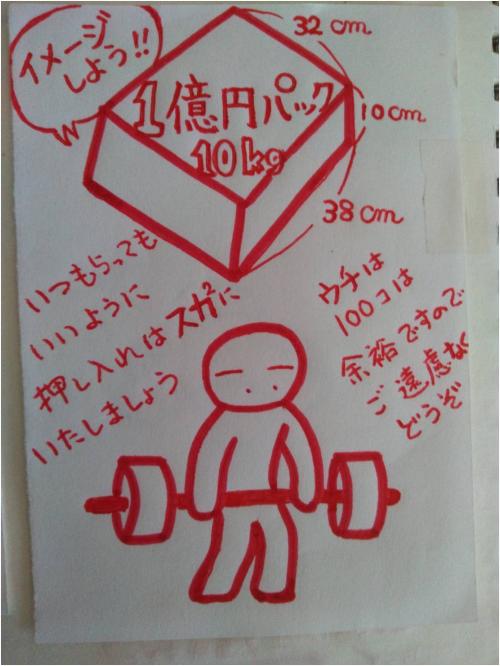 イメージ
しよう!!
32cm
1億円パック
10kg
10cm
38cm
いつもらっても
いいように
押し入れはスガスガに
いたしましょう
ウチは
100コは
余裕ですので
ご遠慮なく
どうぞ